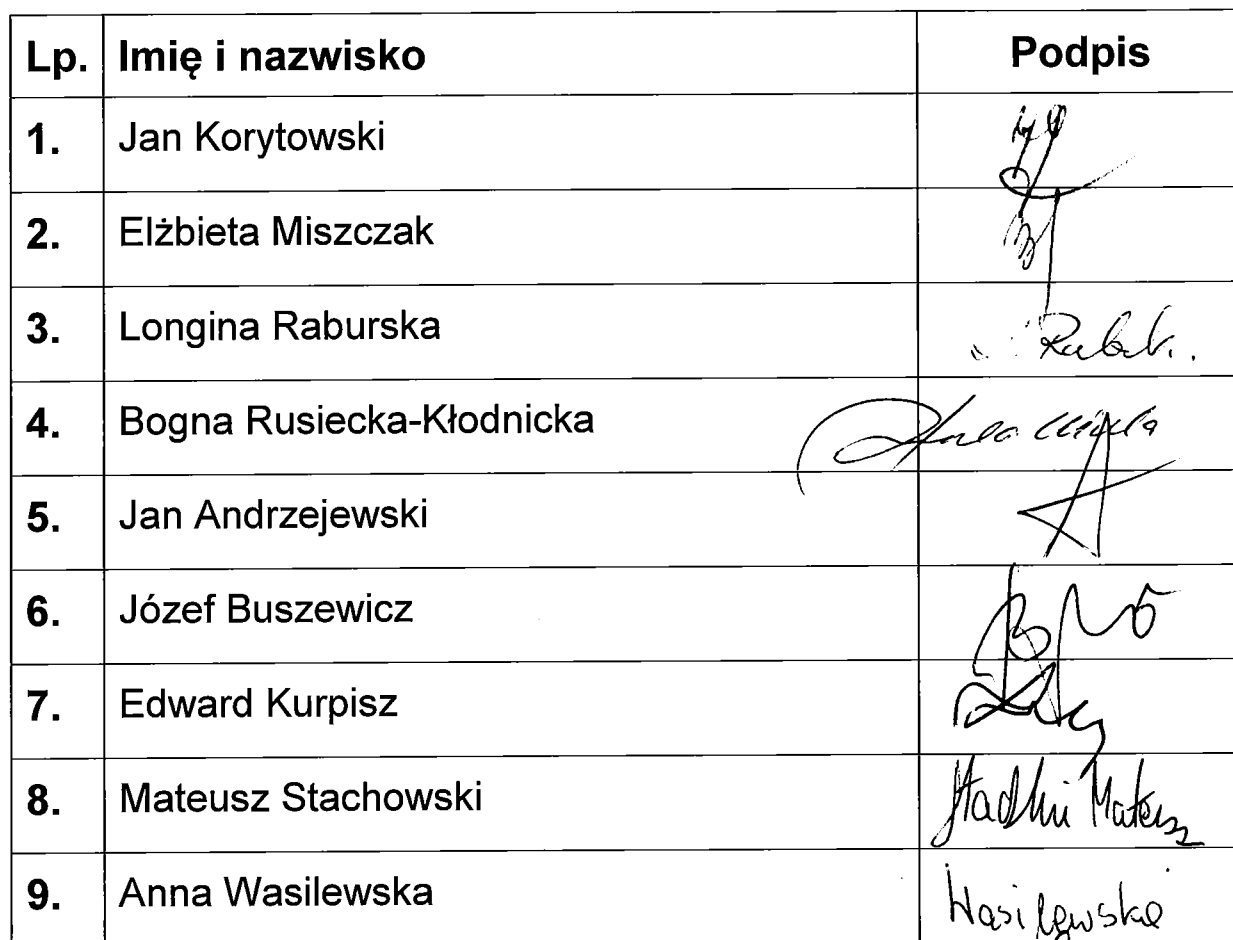 Lp. Imię i nazwisko Podpis
1. Jan Korytowski
2. Elżbieta Miszczak
3. Longina Raburska
4. Bogna Rusiecka-Kłodnicka
5. Jan Andrzejewski
6. Józef Buszewicz
7. Edward Kurpisz
8. Mateusz Stachowski Mateusz
9. Anna Wasilewska Wasilewska